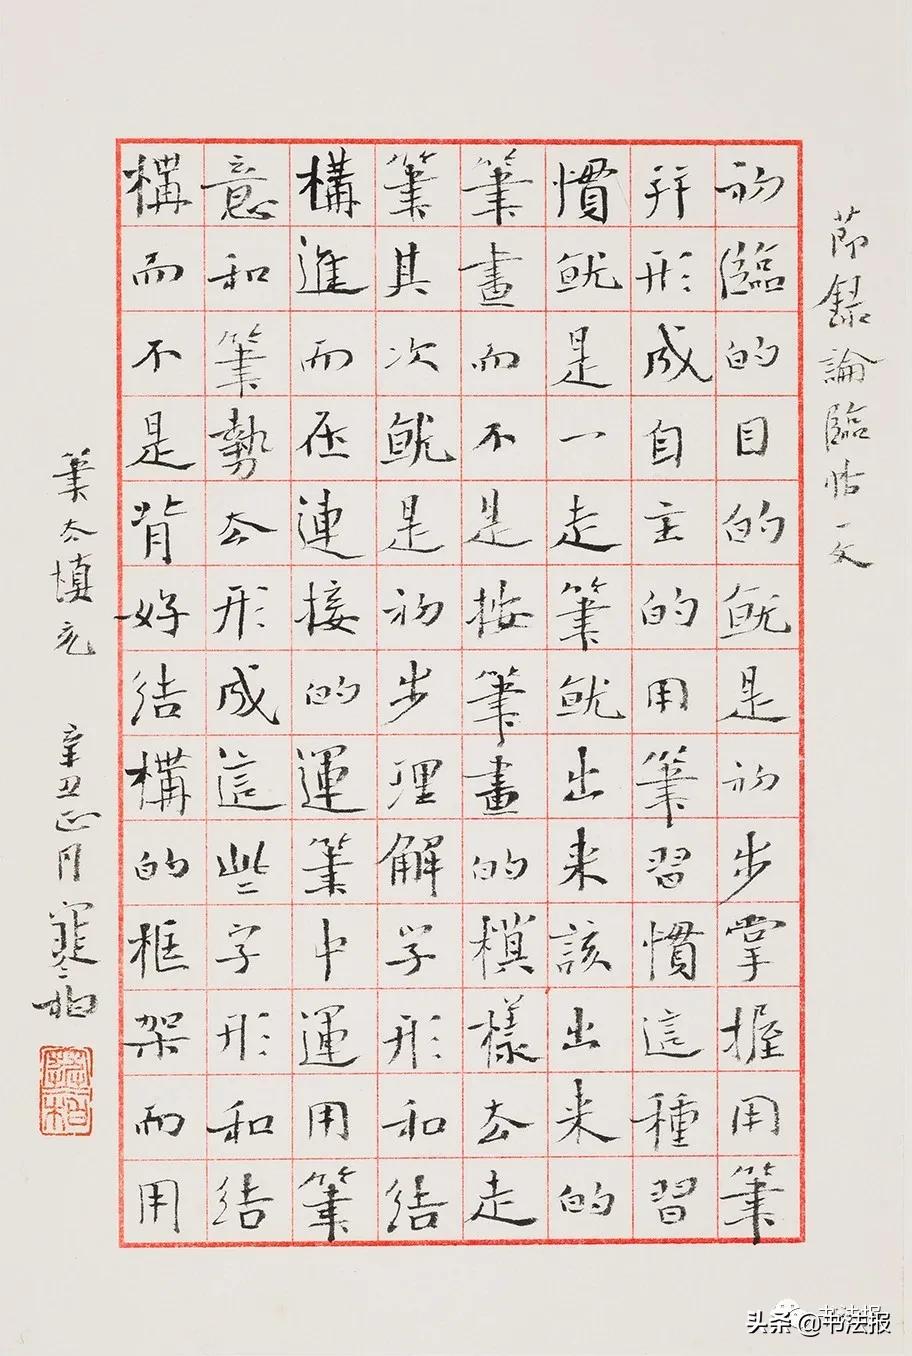 節録論臨帖一文
初臨的目的就是初步掌握用筆
并形成自主的用筆習慣這種習
慣就是一走筆就出来該出来的
筆畫而不是按筆畫的模樣去走
筆其次就是初步理解学形和結
構進而在連接的運筆中運用筆
意和筆勢去形成這些字形和結
構而不是背好結構的框架而用
筆去填充 辛丑正月
书法报
头条 @书法报